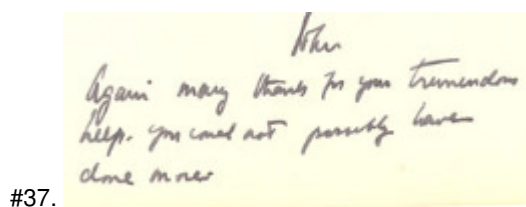 John
Again many thanks for your tremendous
help. You could not possibly have
done more
#37.